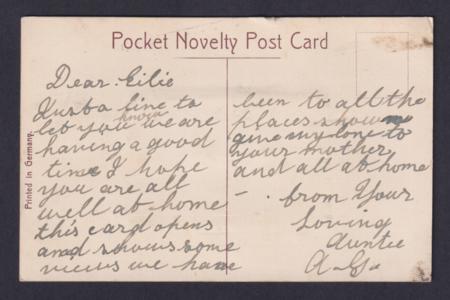 Pocket Novelty Post Card
Printed in Germany.
Dear Eilie
Just a line to
let you know we are
having a good
time I hope
you are all
well at home
this card opens
and shows some
views we have
been to all the
places shown
give my love to
your mother
and all at home
- . from Your
Loving
Auntie